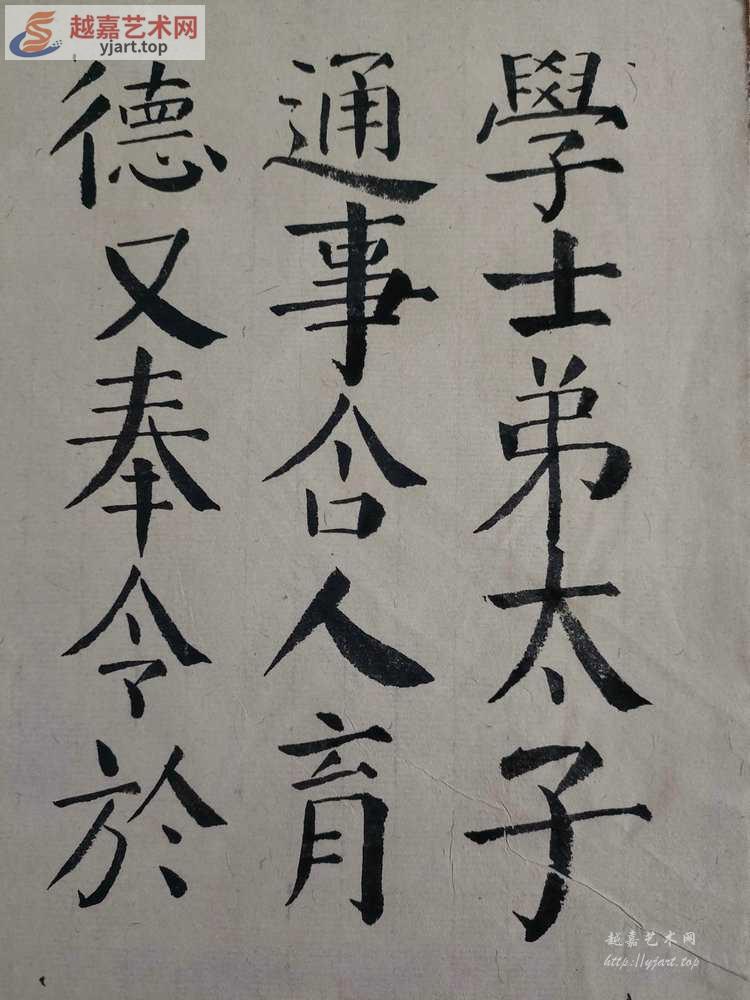 越嘉艺术网
yjart.top
學士弟太子
通事舍人育
德又奉令於
越嘉艺术网
http://yjart.top